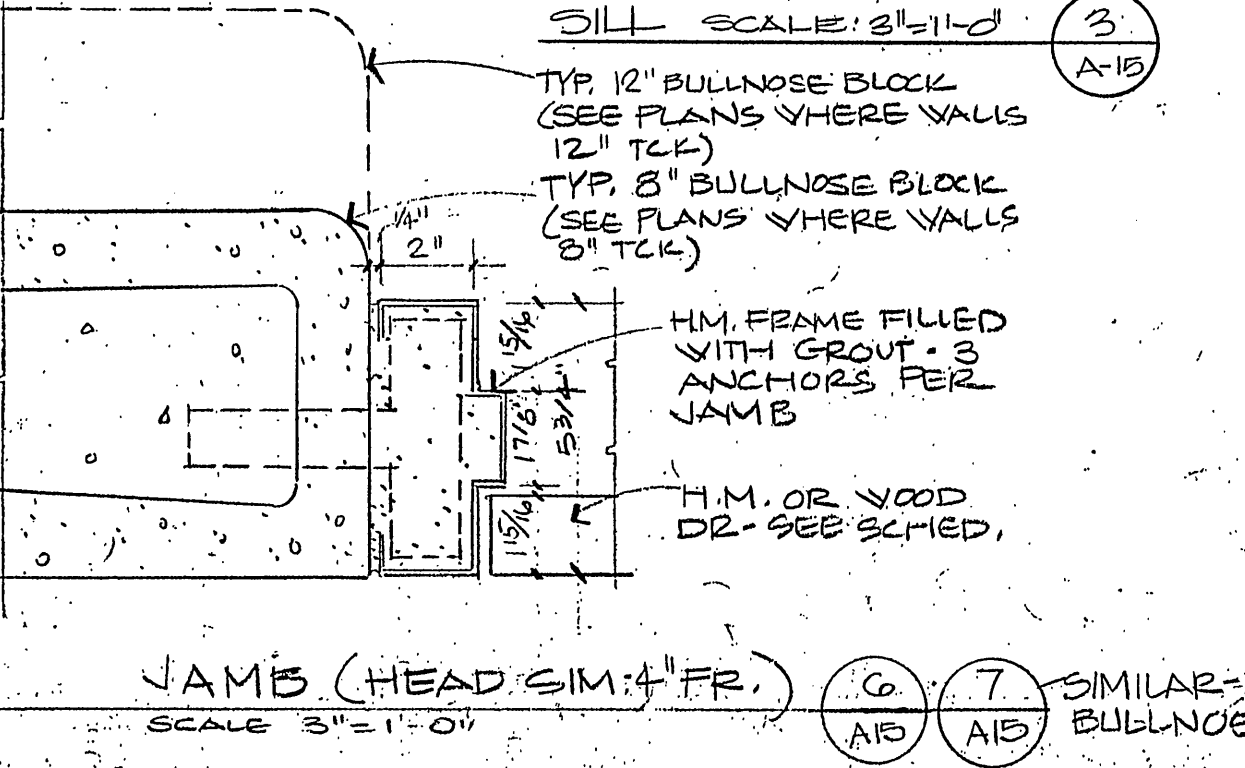 SILL SCALE: 3"=1'-0"
3
A-15
TYP. 12" BULLNOSE BLOCK
(SEE PLANS WHERE WALLS
12" TCK)
TYP. 8" BULLNOSE BLOCK
(SEE PLANS WHERE WALLS
8" TCK)
1/4"
2"
1 15/16
H.M. FRAME FILLED
WITH GROUT - 3
ANCHORS PER
JAMB
1 7/8"
5 3/4"
1 15/16
H.M. OR WOOD
DR- SEE SCHED.
JAMB (HEAD SIM: 4" FR.)
SCALE 3"=1'-0"
6
A15
7
A15
SIMILAR-
BULLNOS